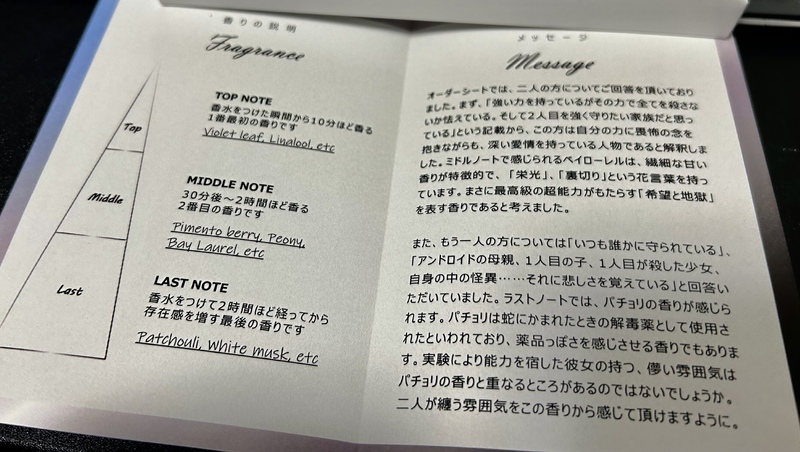 香りの説明
Fragrance
Top
Middle
Last
TOP NOTE
香水をつけた瞬間から10分ほど香る
1番最初の香りです
Violet leaf, Linalool, etc
MIDDLE NOTE
30分後～2時間ほど香る
2番目の香りです
Pimento berry, Peony,
Bay Laurel, etc
LAST NOTE
香水をつけて2時間ほど経ってから
存在感を増す最後の香りです
Patchouli, White musk, etc
メッセージ
Message
オーダーシートでは、二人の方についてご回答を頂いており
ました。まず、「強い力を持っているがその力で全てを殺さな
いか怯えている。そして2人目を強く守りたい家族だと思っ
ている」という記載から、この方は自分の力に畏怖の念を
抱きながらも、深い愛情を持っている人物であると解釈しま
した。ミドルノートで感じられるベイローレルは、繊細な甘い
香りが特徴的で、「栄光」、「裏切り」という花言葉を持っ
ています。まさに最高級の超能力がもたらす「希望と地獄」
を表す香りであると考えました。
また、もう一人の方については「いつも誰かに守られている」、
「アンドロイドの母親、1人目の子、1人目が殺した少女、
自身の中の怪異……それに悲しさを覚えている」と回答い
ただいていました。ラストノートでは、パチョリの香りが感じら
れます。パチョリは蛇にかまれたときの解毒薬として使用さ
れたといわれており、薬品っぽさを感じさせる香りでもありま
す。実験により能力を宿した彼女の持つ、儚い雰囲気は
パチョリの香りと重なるところがあるのではないでしょうか。
二人が纏う雰囲気をこの香りから感じて頂けますように。